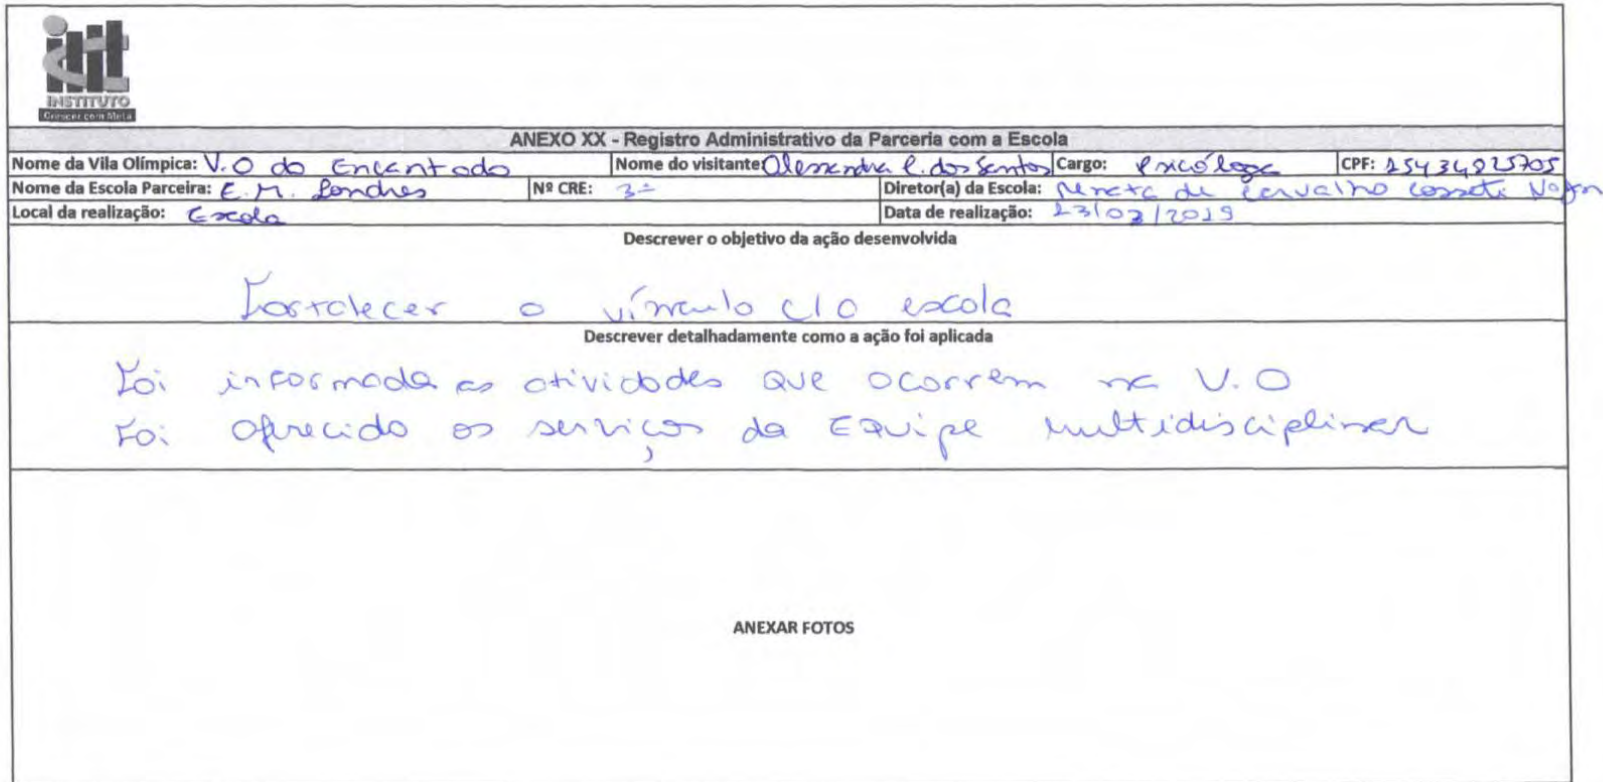 INSTITUTO
Crescer com Meta
ANEXO XX - Registro Administrativo da Parceria com a Escola
Nome da Vila Olímpica: V.O do Encantado Nome do visitante: Alessandra C. dos Santos Cargo: Psicóloga CPF:
Nome da Escola Parceira: E.M. Londres Nº CRE: 3ª Diretor(a) da Escola: de Carvalho
Local da realização: Escola Data de realização:
Descrever o objetivo da ação desenvolvida
Fortalecer o vínculo c/o escola
Descrever detalhadamente como a ação foi aplicada
Foi informada as atividades que ocorrem na V.O
Foi oferecido os serviços da Equipe multidisciplinar
ANEXAR FOTOS